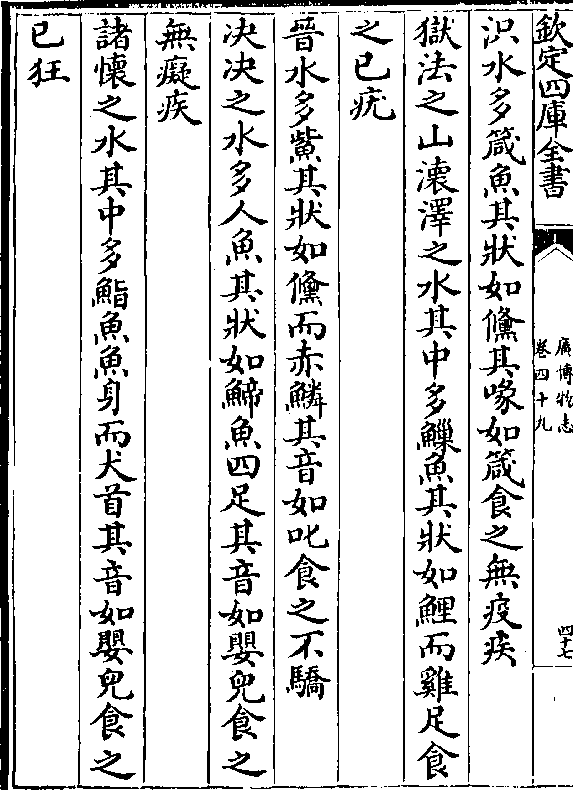 欽定四庫全書
廣博物志
卷四十九
四十七
汦水多箴魚其狀如儵其喙如箴食之無疫疾
獄法之山瀤澤之水其中多䲃魚其狀如鯉而雞足食
之已疣
晉水多鮆其狀如儵而赤鱗其音如叱食之不驕
决决之水多人魚其狀如䱱魚四足其音如嬰兒食之
無癡疾
諸懷之水其中多鮨魚魚身而犬首其音如嬰兒食之
已狂